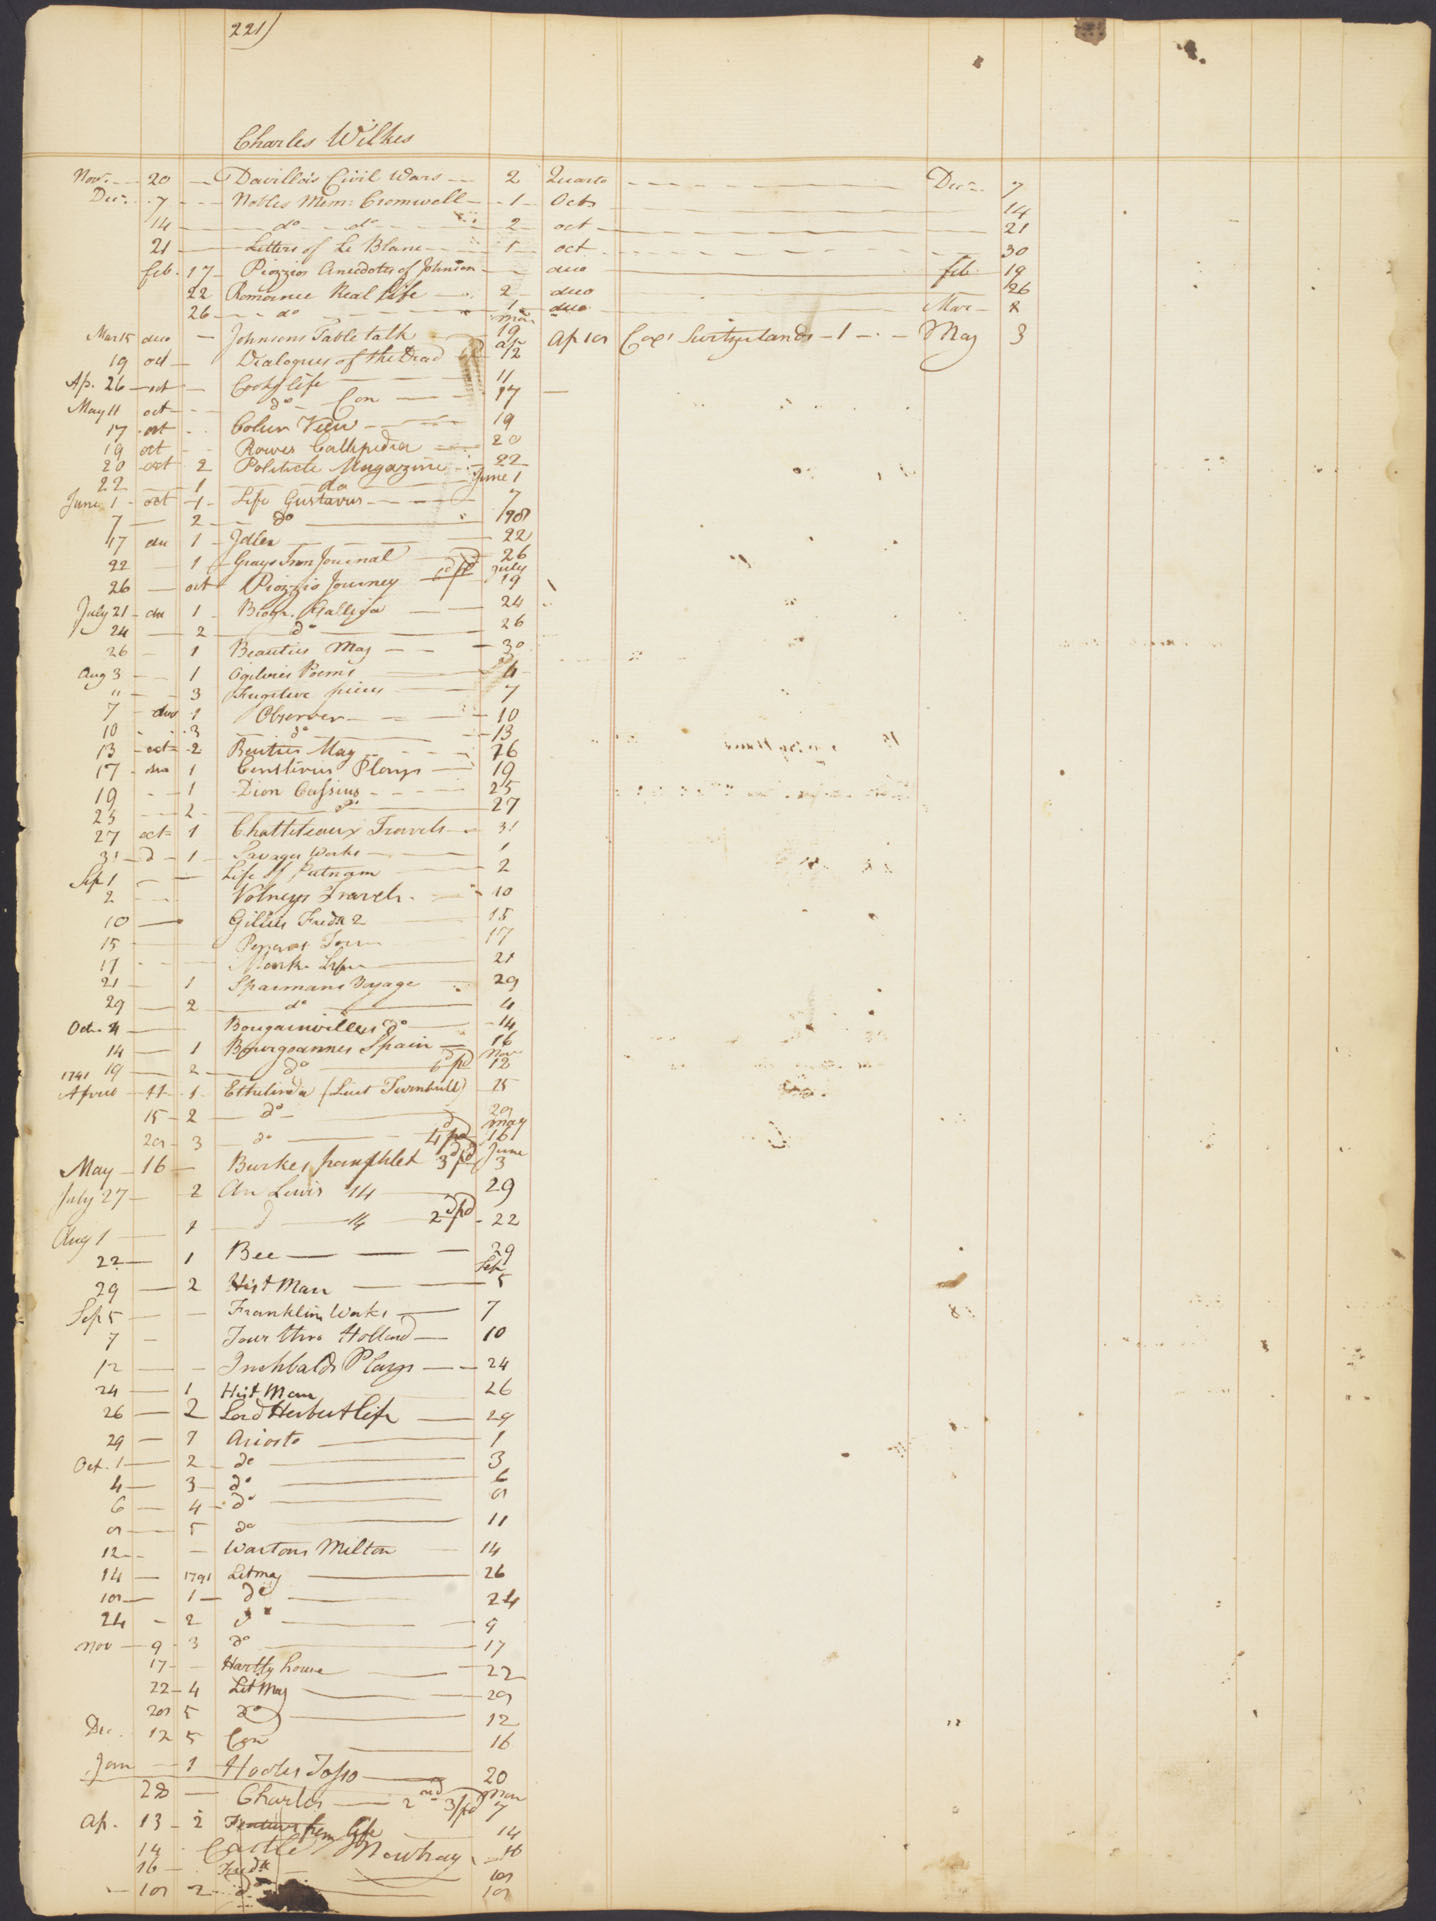 221)
Charles Wilkes
Novr. 20 Davilla's Civil Wars 2 Quarto Decr. 7
Decr. 7 Nobles Mem: Cromwell 1 Octo 14
14 do do 2 oct 21
21 Letters of Le Blanc 1 oct 30
feb. 17 Piozzios Anecdotes of Johnson duo feb 19
22 Romance Real Life 2 duo 26
26 do 1 duo Mar 2
Mar 15 duo Johnsons Table talk Mar 19 Ap 18 Coxs Switzerlands 1 May 3
19 oct Dialogues of the Dead ap 12
Ap. 26 oct Cooks life 11
May 11 oct do Con 17
17 oct View 19
19 oct Rowes Callipedia 20
20 oct 2 Politicle Magazine 22
22 1 do June 1
June 1 oct 1 Life Gustavus 7
7 2 do
17 du 1 Idler 22
22 1 Grays Journal 26
26 oct Piozzio Journey pd July 19
July 21 du 1 Biogr. Gallica 24
24 2 do 26
26 1 Beauties Mag 30
Aug 3 1 Ogilvies Poems 4
" 3 Fugitive pieces 7
7 duo 1 Observer 10
10 3 do 13
13 oct 2 Beuties Mag 16
17 duo 1 Centlivres Plays 19
19 1 Dion Cassius 25
25 2 do 27
27 oct 1 Travels 31
31 d 1 Savages Works 1
Sep 1 Life of Putnam 2
2 Volneys Travels 10
10 Gillies Fredk 2 15
15 Tour 17
17 Monks Life 21
21 1 Sparmans Voyage 29
29 2 do 4
Oct. 4 Bougainvilles do 14
14 1 Bourgoannes Spain 16
19 2 do pd Nov 12
1791
Aprill 11 1 Ethelinda (Lieut Turnbull) 15
15 2 do 28
28 3 do 4d pd May 16
May 16 Burkes pamphlet 3d pd June 3
July 27 2 An Lewis 14 29
Aug 1 1 d 14 2d pd 22
22 1 Bee 29
29 2 Hist Man Sep 5
Sep 5 Franklins Works 7
7 Tour thro Holland 10
12 Inchbalds Plays 24
24 1 Hist Man 26
26 2 Lord Herbert life 29
29 1 Ariosto 1
Oct. 1 2 do 3
4 3 do 6
6 4 do 8
8 5 do 11
12 Wartons Milton 14
14 1791 Lit mag 26
18 1 do 24
24 2 do 9
Nov 9 3 do 17
17 Hartly house 22
22 4 Lit Mag 28
28 5 do 12
Dec. 12 5 Con 16
Jan 1 Hooles Tasso 20
28 Charles 2nd 3/pd Mar 7
Ap. 13 2 from life 14
14 Castle Mowbray 16
16 Fredk 18
18 2 d 18